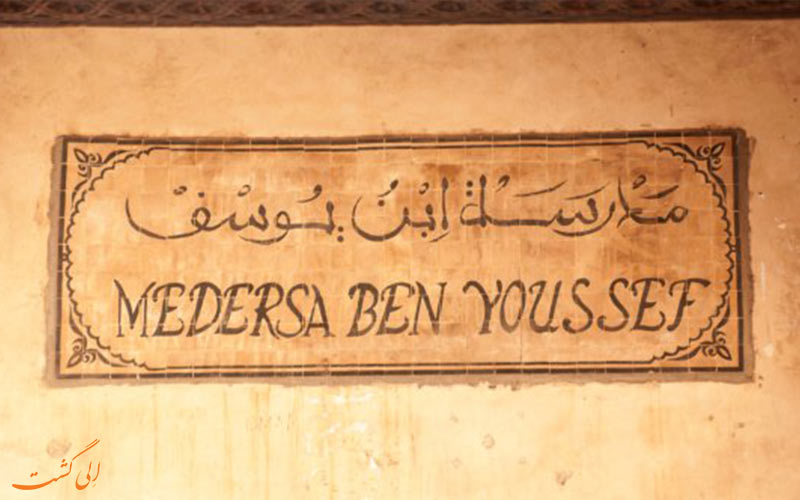 مَدْرَسَـــلة اِبْنُ يُوسْفْ
MEDERSA BEN YOUSSEF
الی گشت